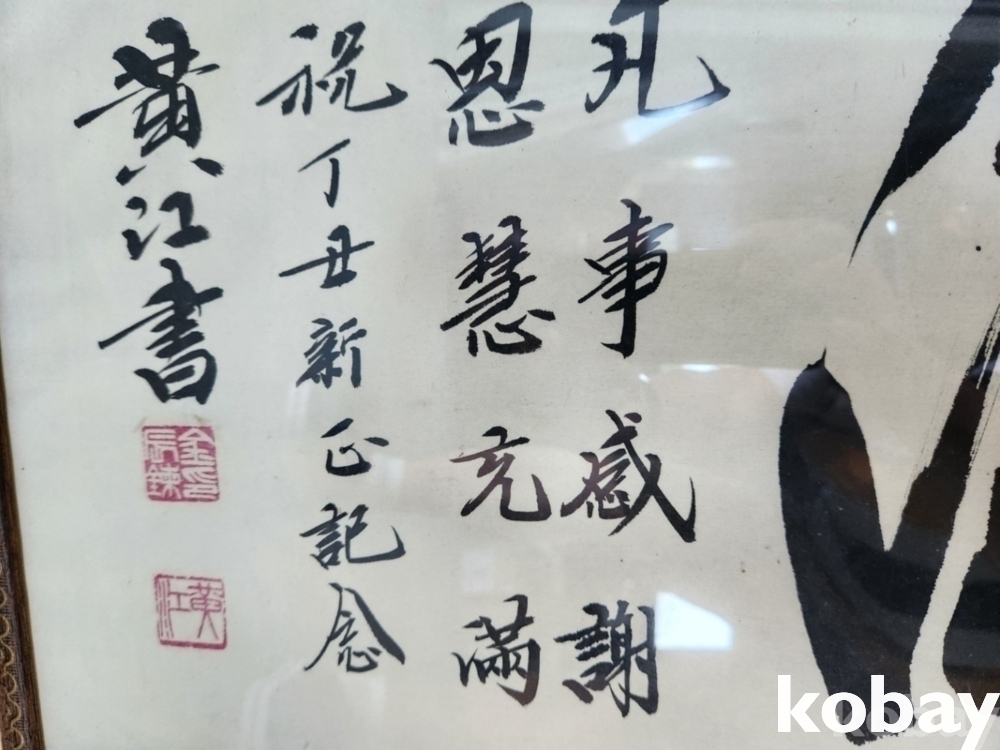 凡事感謝
恩慧充滿
祝丁丑新正記念
黃江書
黃江
kobay